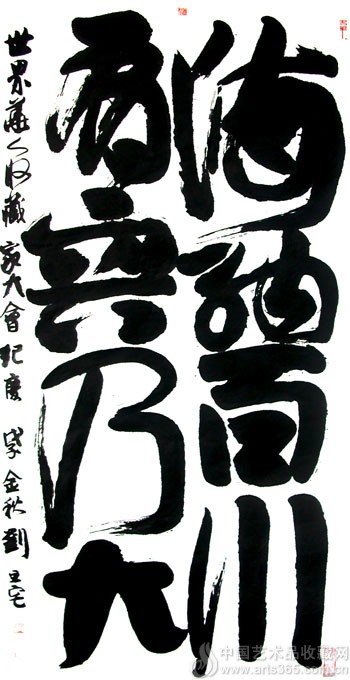 海纳百川
有容乃大
世界华人收藏家大会纪庆 戊子金秋 刘旦宅
中国艺术品收藏网
www.arts365.com.cn